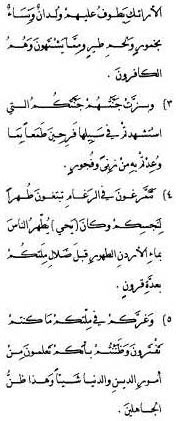 الأرائك يطوف عليهم ولدان ونساء
بخمور ولحم طير ومما يشتهون وهم
الكافرون .
٣) وبرزت جنتهم جنتكم التي
استشهدتم في سبيلها فرحين طمعا بما
وعدتم به من زنى وفجور .
٤) تتمرغون في الرغام تبتغون طهرا
لنجسكم وكان (يحي) يطهر الناس
بماء الأردن الطهور قبل ضلال ملتكم
بعدة قرون .
٥) وغركم في ملتكم ما كنتم
تفترون وظننتم بأنكم تعلمون من
أمور الدين والدنيا شيئا وهذا ظن
الجاهلين .